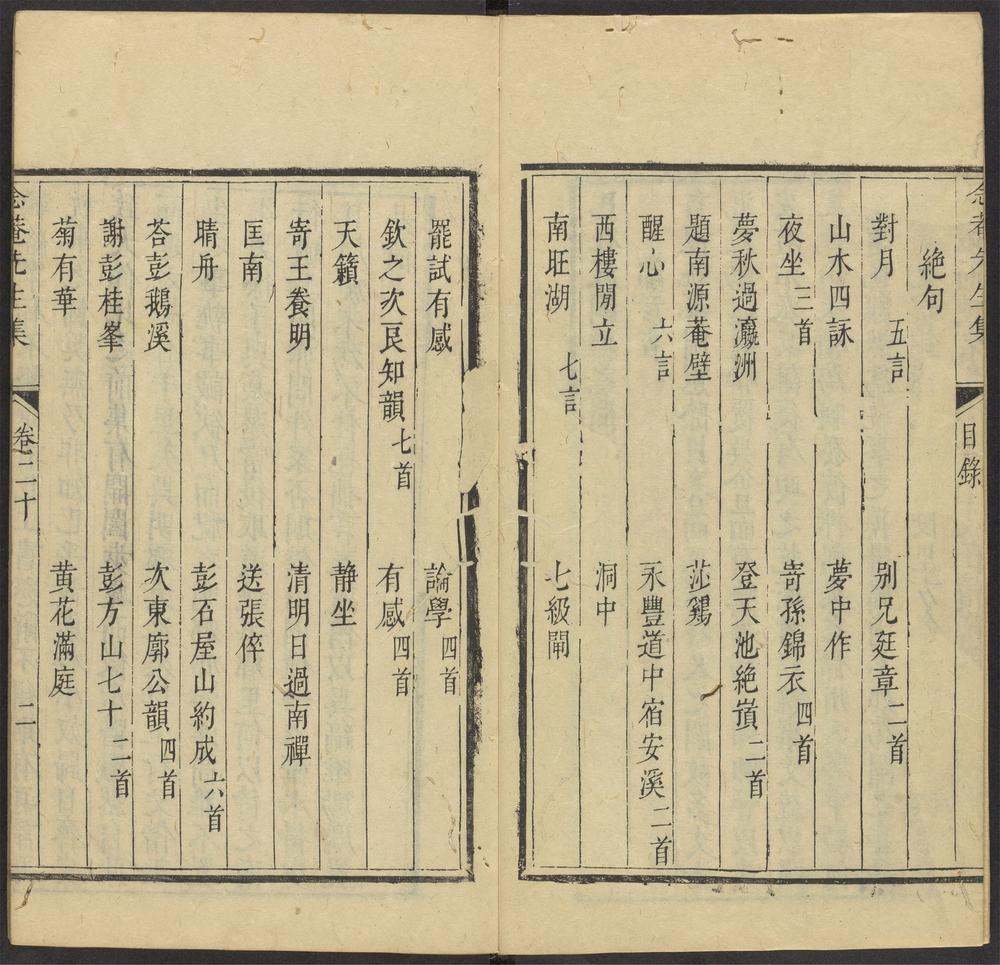 念菴先生集 目錄
絶句
對月 五言 别兄廷章二首
山水四詠 夢中作
夜坐三首 寄孫錦衣四首
夢秋過瀛洲 登天池絶嵿二首
題南源菴壁 莎鷄
醒心 六言 永豐道中宿安溪二首
西樓閒立 洞中
南旺湖 七言 七級閘
罷試有感 論學四首
欽之次良知韻七首 有感四首
天籟 静坐
寄王養明 清明日過南禪
匡南 送張倅
晴舟 彭石屋山約成六首
荅彭鵝溪 次東廓公韻四首
謝彭桂峯 彭方山七十二首
菊有華 黄花滿庭
念菴先生集 卷二十 二